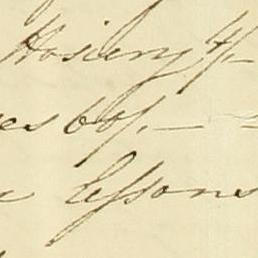 Hosiery 4/-
es 60/. -
Lessons